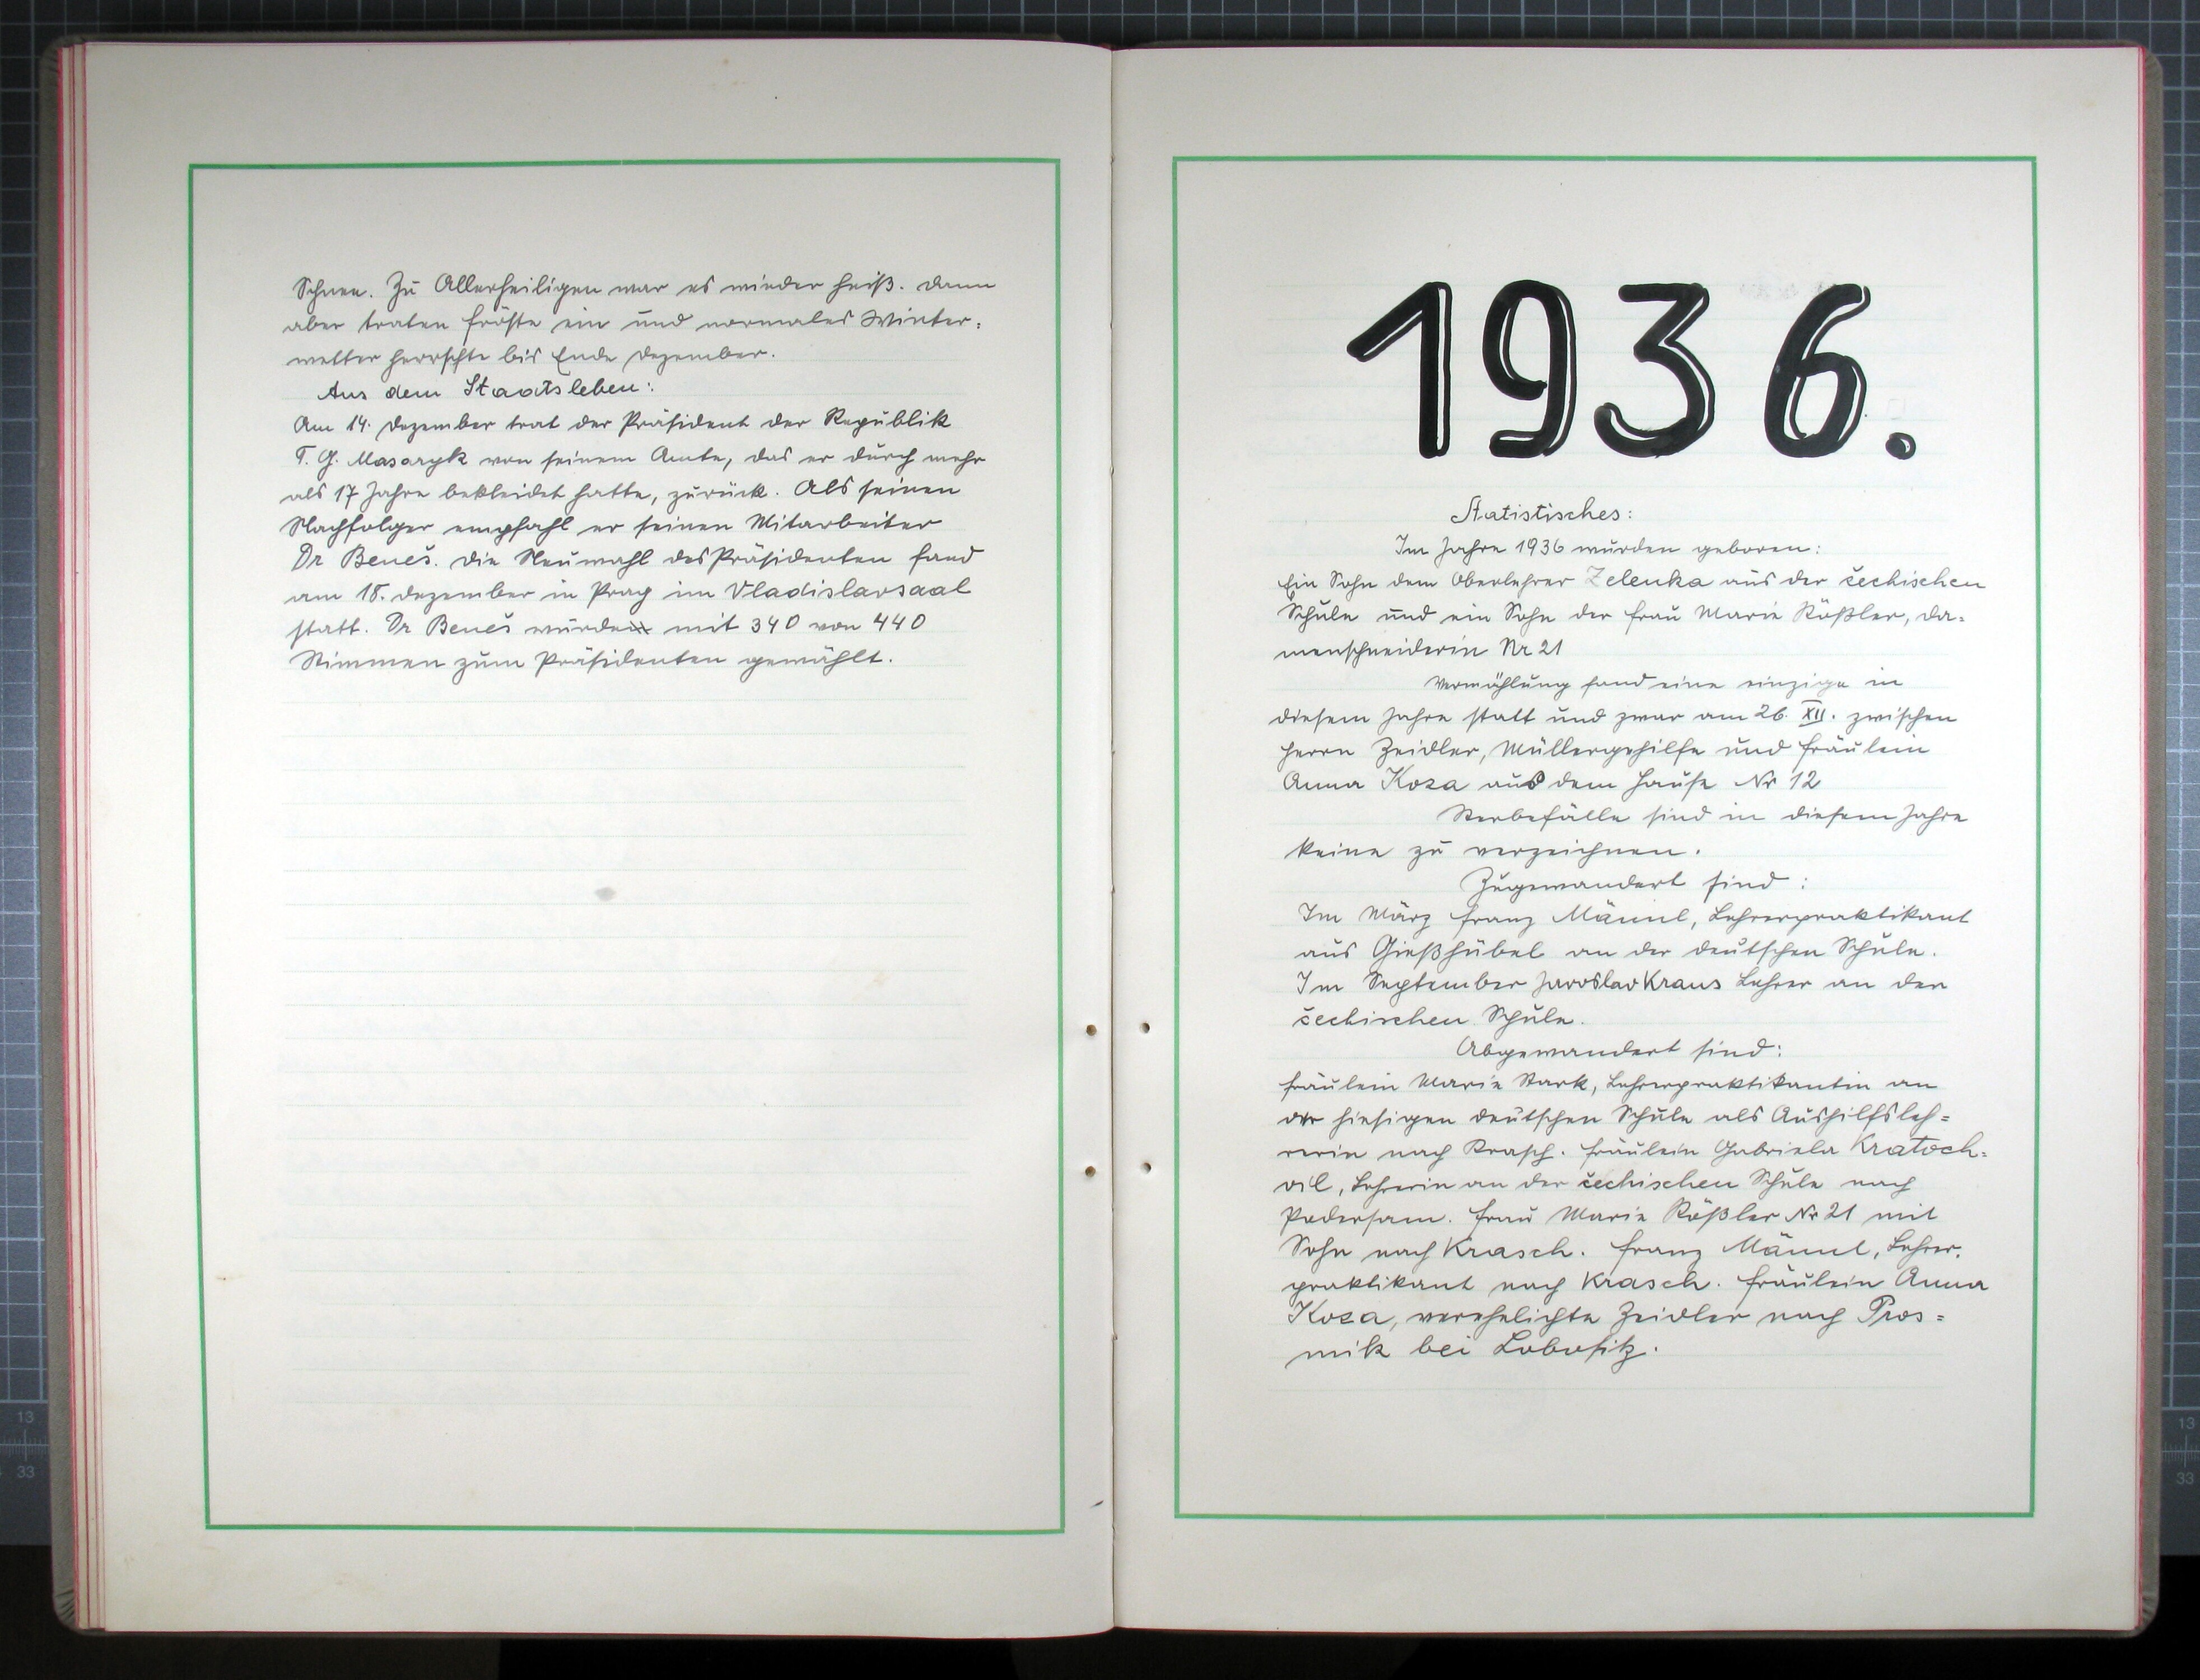 Schnee. Zu Allerheiligen war es wieder heiß. Dann
aber traten Fröste ein und normales Winter-
wetter herrschte bis Ende Dezember.
Aus dem Staatsleben:
Am 14. Dezember trat der Präsident der Republik
T. G. Masaryk von seinem Amte, das er durch mehr
als 17 Jahre bekleidet hatte, zurück. Als seinen
Nachfolger empfahl er seinen Mitarbeiter
Dr Beneš. Die Neuwahl des Präsidenten fand
am 18. Dezember in Prag im Vladislavsaal
statt. Dr Beneš wurde mit 340 von 440
Stimmen zum Präsidenten gewählt.
1936.
Statistisches:
Im Jahre 1936 wurden geboren:
Ein Sohn dem Oberlehrer Zelenka aus der čechischen
Schule und ein Sohn der Frau Marie Rößler, Da-
menschneiderin Nr 21
Vermählung fand eine einzige in
diesem Jahre statt und zwar am 26. XII. zwischen
Herrn Zeidler, Müllergehilfe und Fräulein
Anna Koza aus dem Hause Nr 12
Sterbefälle sind in diesem Jahre
keine zu verzeichnen.
Zugewandert sind:
Im März Franz Männl, Lehrerpraktikant
aus Gießhübel an der deutschen Schule.
Im September Jaroslav Kraus Lehrer an der
čechischen Schule.
Abgewandert sind:
Fräulein Marie Stark, Lehrerpraktikantin an
der hiesigen deutschen Schule als Aushilfsleh-
rerin nach Krasch. Fräulein Gabriela Kratoch-
vil, Lehrerin an der čechischen Schule nach
Podersam. Frau Marie Rößler Nr 21 mit
Sohn nach Krasch. Franz Männl, Lehrer-
praktikant nach Krasch. Fräulein Anna
Koza, verehelichte Zeidler nach Pros-
mik bei Lobositz.
13
33
13
33